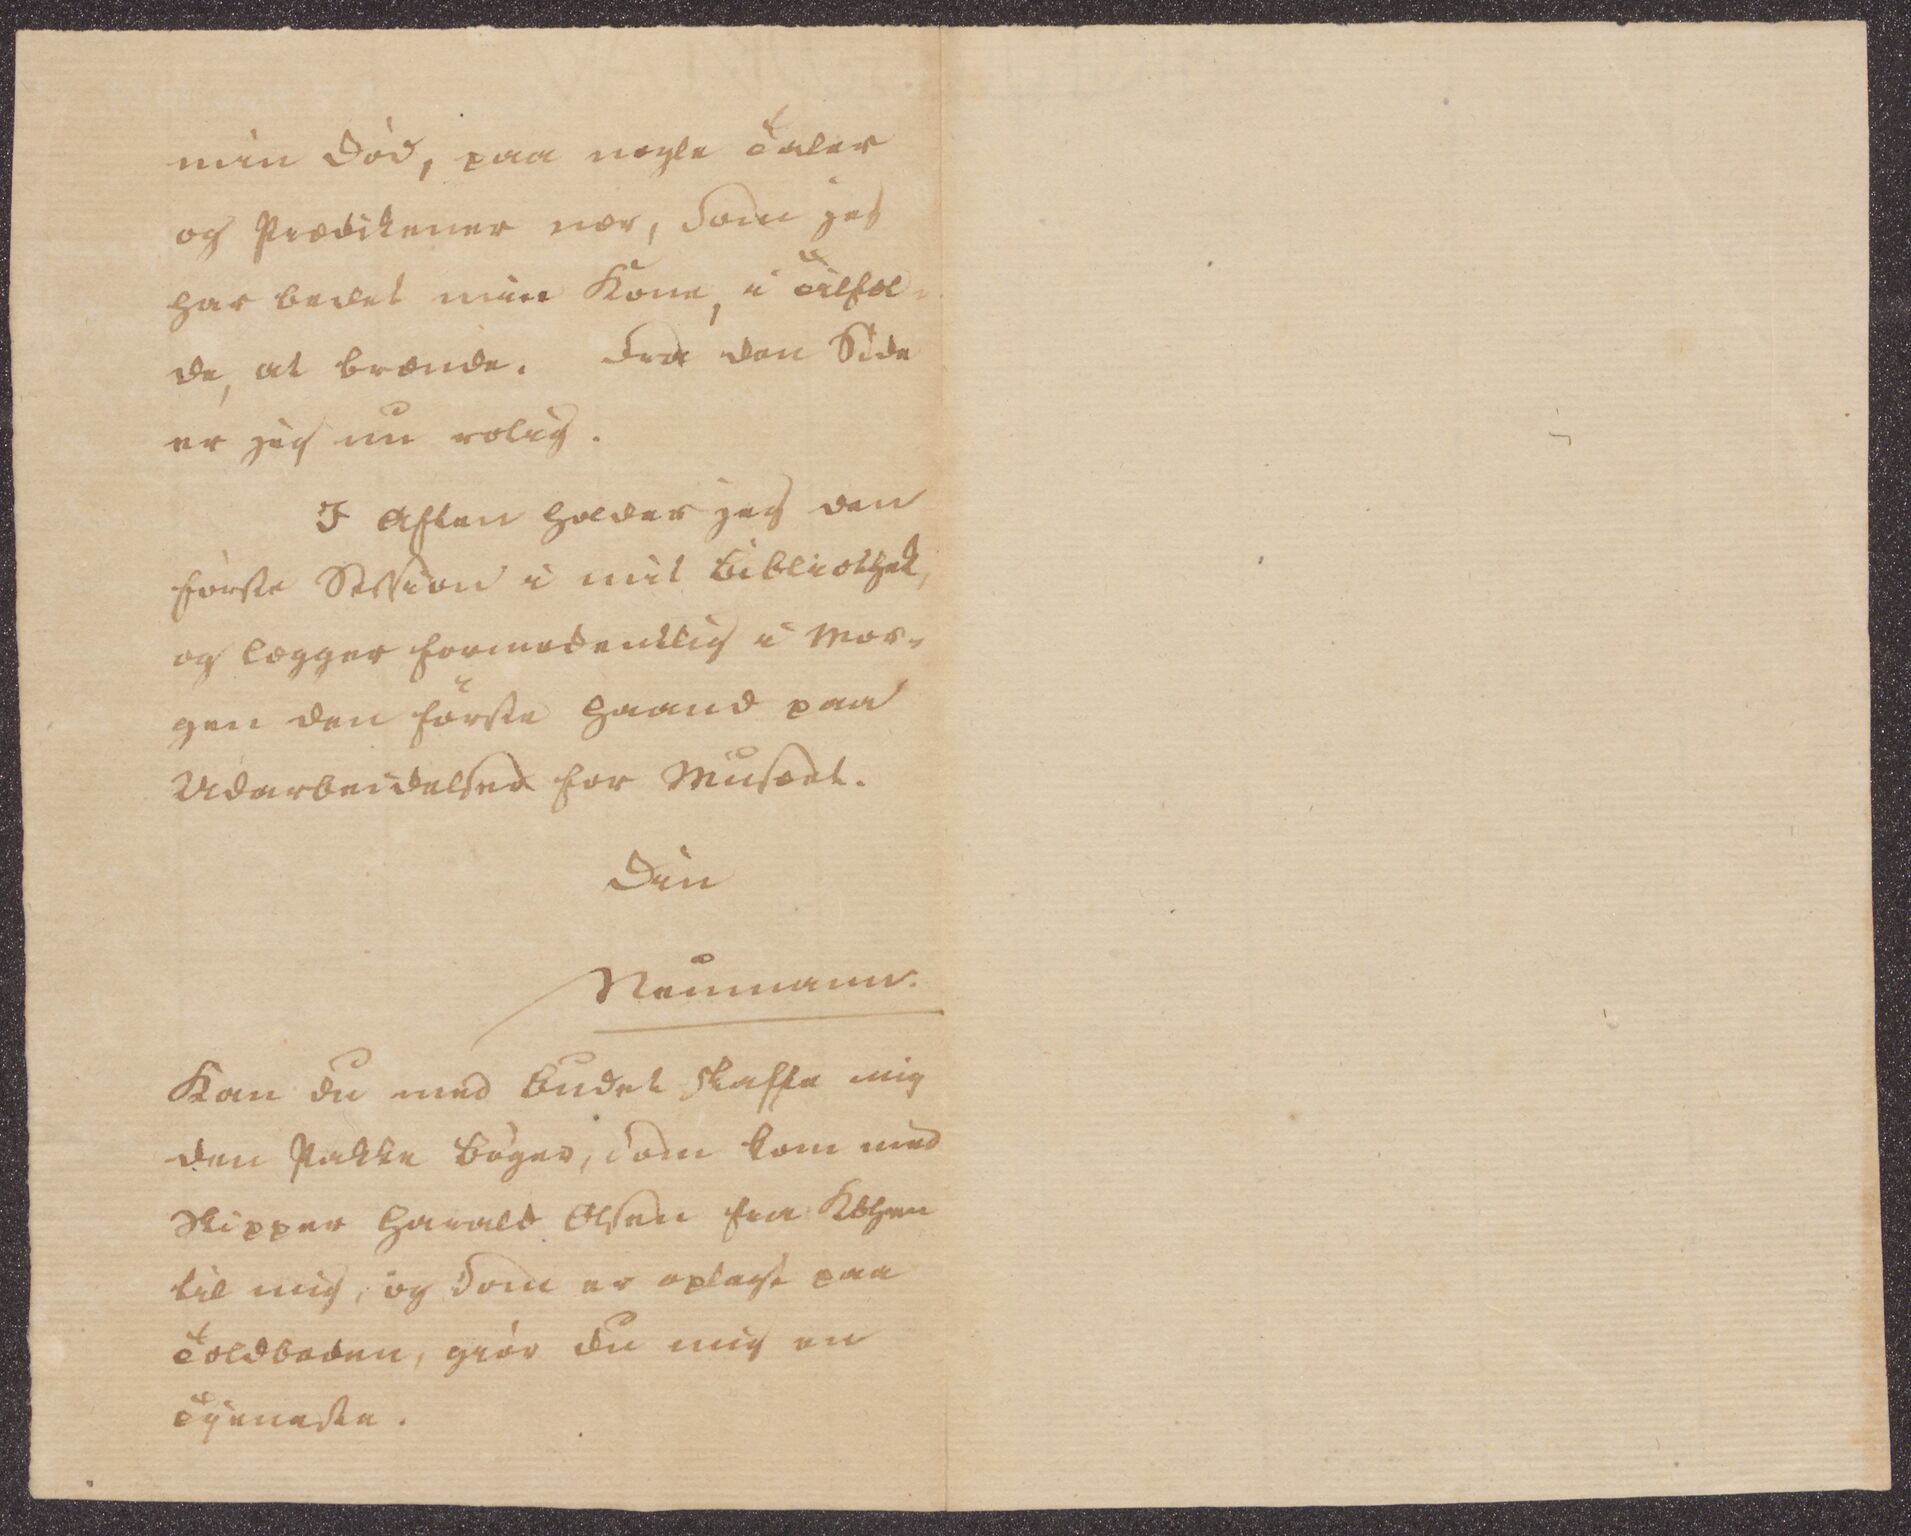 min Død, paa nogle Taler
og Prædikener nær, som jeg
har bedet min Kone, i Tilfæl-
de, at brænde. Fra den Side
er jeg nu rolig.
I Aften holder jeg den
første Session i mit Bibliothek,
og lægger formodentlig i Mor-
gen den første Haand paa
Udarbeidelser for Museet.
Din
Neumann.
Kan du med Budet skaffe mig
den Pakke Bøger, som kom med
Skipper Harald Olsen fra Kbhvn
til mig, og som er oplagt paa
Toldboden, giør du mig en
Tjeneste.